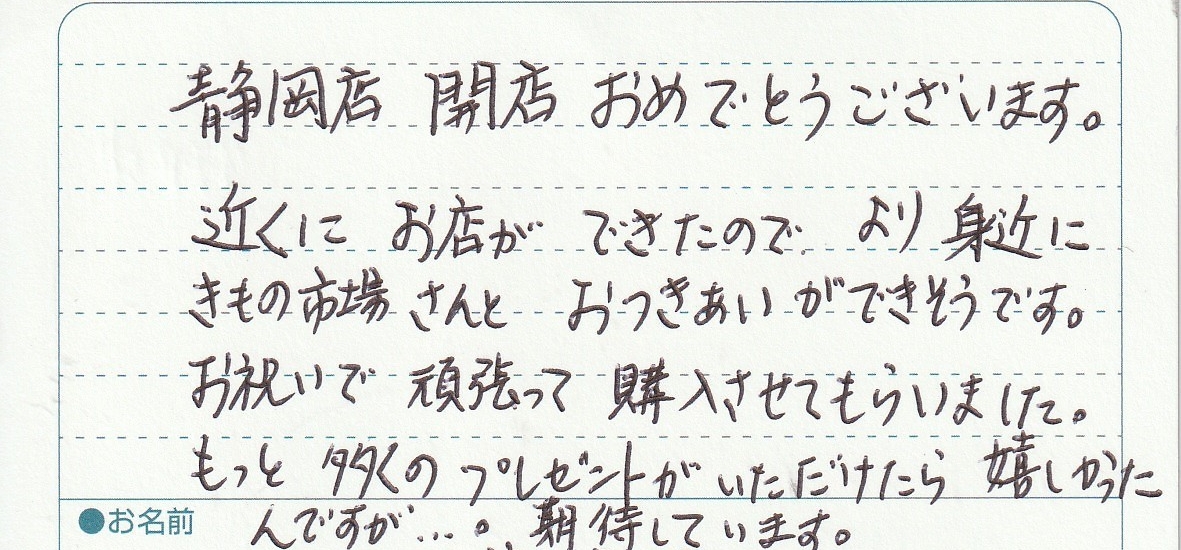 静岡店 開店 おめでとうございます。
近くに お店が できたので、より身近に
きもの市場 さんと おつきあい ができそうです。
お祝いで 頑張って 購入させてもらいました。
もっと 多くの プレゼントが いただけたら 嬉しかった
●お名前
んですが…。期待しています。